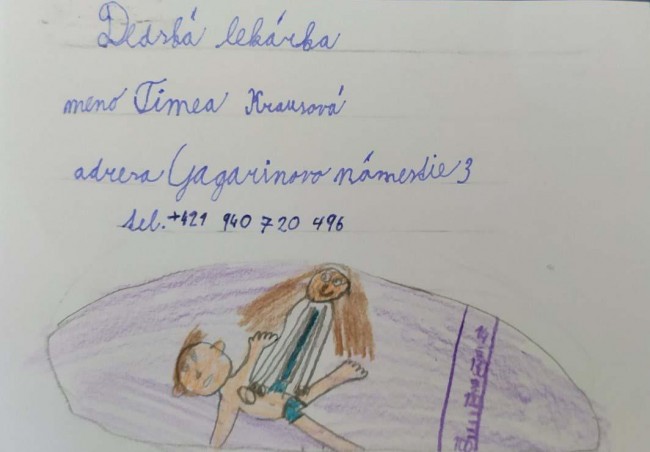 Dedská lekárka
meno Timea Krausová
adresa Gagarinovo námestie 3
tel. +421 940 720 496